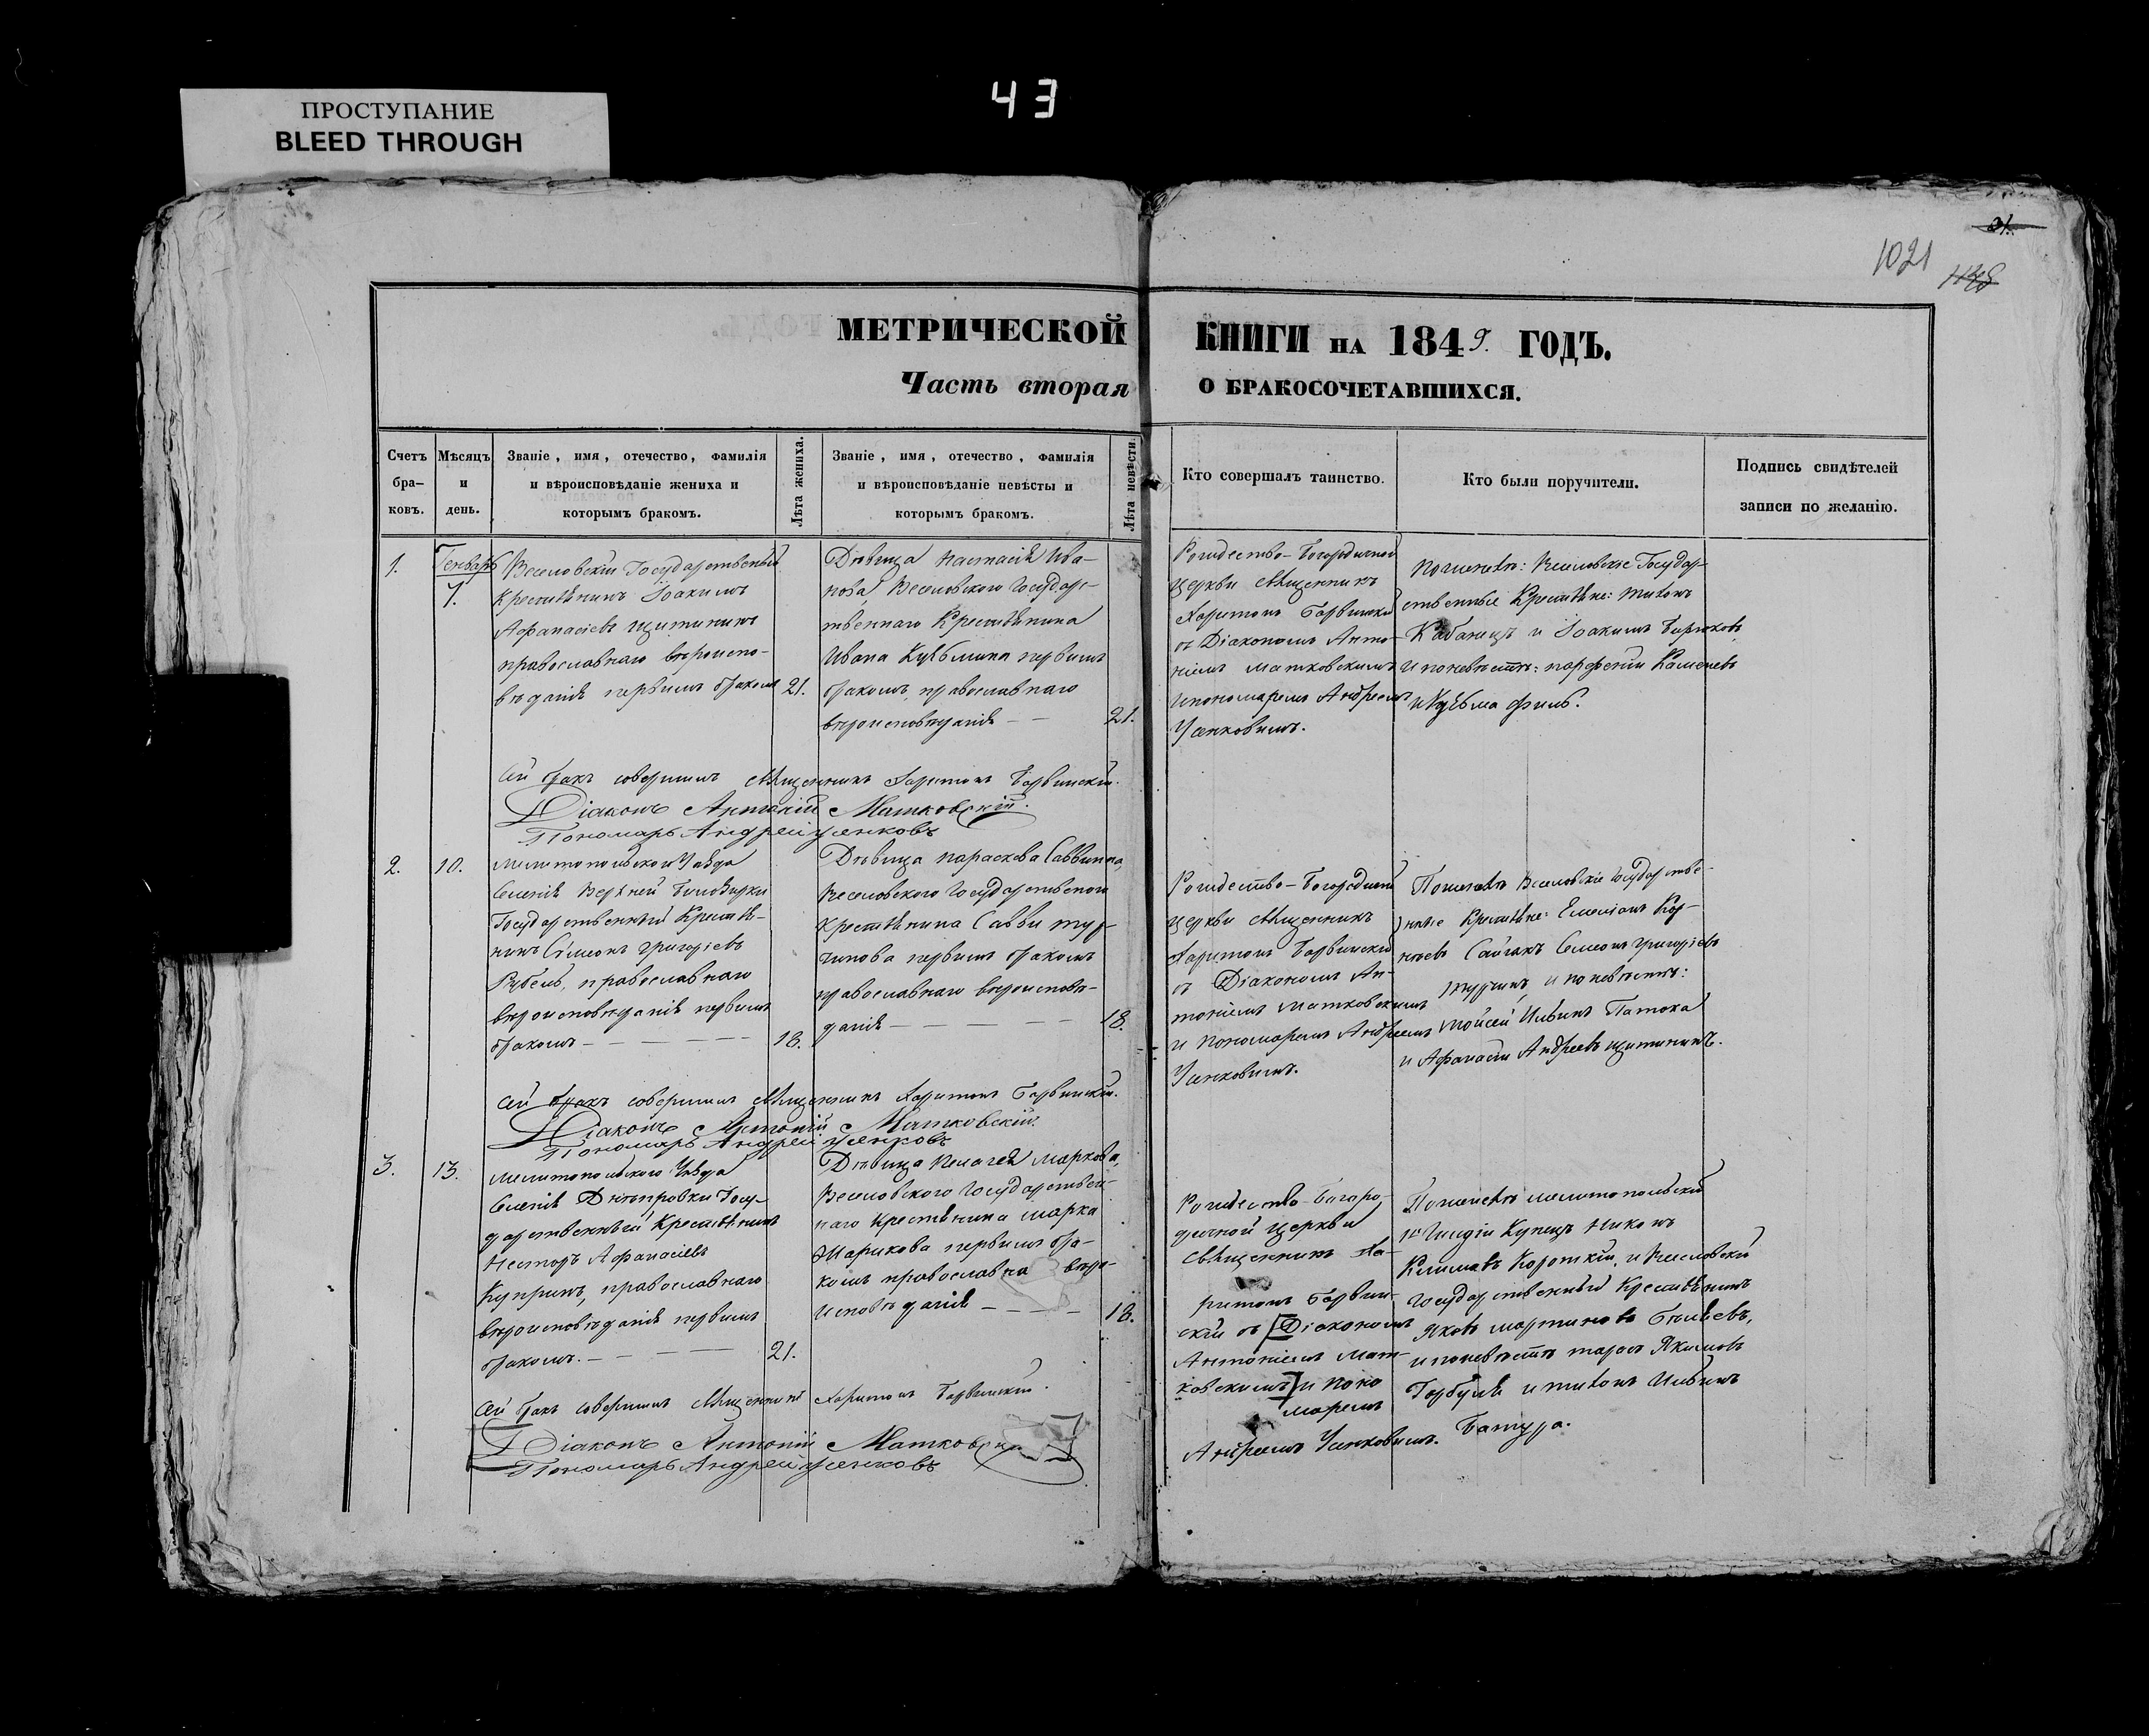 43
ПРОСТУПАНИЕ
BLEED THROUGH
21.
1021
МЕТРИЧЕСКОЙ КНИГИ НА 1849. ГОДЪ.
Часть вторая О БРАКОСОЧЕТАВШИХСЯ.
Счетъ бра-ковъ.
Мѣсяцъ и день.
Званіе, имя, отечество, фамилія
и вѣроисповѣданіе жениха и
которымъ бракомъ.
Лѣта жениха.
Званіе, имя, отечество, фамилія
и вѣроисповѣданіе невѣсты и
которымъ бракомъ.
Лѣта невѣсти.
Кто совершалъ таинство.
Кто были поручители.
Подпись свидѣтелей
записи по желанію.
1.
Генварь
7.
Веселовскій Государственый
Крестянинъ Іоакимъ
Афанасіевъ Щитининъ
православнаго вѣроиспо-
вѣданія первимъ бракомъ
21.
Дѣвица Настасія Ива-
нова Веселовского Государс-
твеннаго Крестянина
Ивана Кузьмина первимъ
бракомъ, православнаго
вѣроисповѣданія
21.
Рождество-Богородичной
церкви Священникъ
Харитонъ Барвинскій
съ Діакономъ Анто-
ніемъ Матковскимъ
и пономаремъ Андреемъ
Усенковимъ.
Пожениhѣ: Веселовскіе Государ-
ственные Крестяне: Тихонъ
Кабанецъ и Іоакимъ Бирюковъ
и поневѣстѣ: Парфеній Каменевъ
и Кузьма Филь.
Сей бракъ совершилъ Священникъ Харитонъ Барвинскій.
Діаконъ Антоній Матковскій.
Пономарь Андрей Усенковъ
2.
10.
Мелитопольского Уѣзда
Селенія Верхней Білозірки
Государственный Крестя-
нинъ Сімеонъ Григоріевъ
Рубель, православнаго
вѣроисповѣданія первимъ
бракомъ
18.
Дѣвица Параскева Саввина,
Веселовского Государственого
Крестянина Савви Тур-
чинова первимъ бракомъ
православнаго вѣроисповѣ-
данія
18.
Рождество-Богородичной
церкви Священникъ
Харитонъ Барвинскій
съ Діакономъ Ан-
тоніемъ Матковскимъ
и Пономаремъ Андреемъ
Усенковимъ.
Поженихѣ Веселовскіе Государстве-
нніе Крестяне: Емеліанъ Кор-
нѣевъ Сайгакъ Семеонъ Григоріевъ
Турчинъ, и поневѣстѣ:
Мойсей Ильинъ Патока
и Афанасій Андреевъ Щитининъ.
Сей бракъ совершилъ Священникъ Харитонъ Барвинскій.
Діаконъ Антоній Матковскій.
Пономарь Андрей Усенковъ
3.
13.
Мелитопольского Уѣзда
Селенія Днѣпровки Госу-
дарственный Крестянинъ
Несторъ Афанасіевъ
Купринъ, православнаго
вѣроисповѣданія первимъ
бракомъ.
21.
Дѣвица Пелагея Маркова,
Веселовского Государствен-
наго Крестянина Марка
Шарикова первимъ бра-
комъ православна вѣро-
исповѣданія
18.
Рождество-Богоро-
дичной Церкви
Священникъ Ха-
ритонъ Барвин-
скій съ [Діакономъ
Антоніемъ Мат-
ковскимъ] и поно
маремъ
Андреемъ Усенковимъ.
Поженихѣ Мелитопольскій
Гилдіи Купецъ Никонъ
Климовъ Короткій, и Веселовскій
Государственный Крестянинъ
Яковъ Мартиновъ Бѣляевъ,
и поневѣстѣ Тарасъ Якимовъ
Горбуля и Тихонъ Ильинъ
Батура.
Сей бракъ совершилъ Священникъ Харитонъ Барвинскій.
[Діаконъ Антоній Матковскій]
Пономарь Андрей Усенковъ